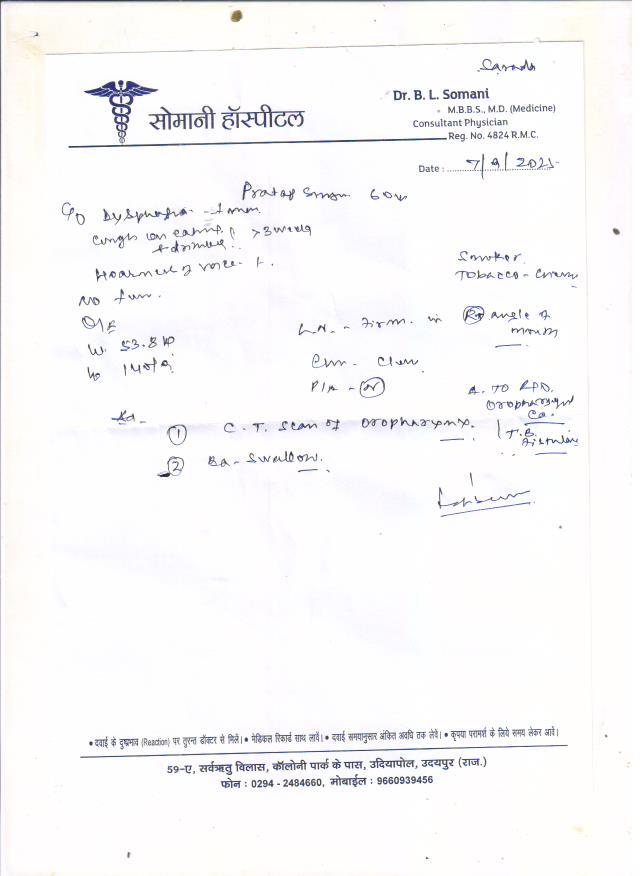 Dr. B. L. Somani
M.B.B.S., M.D. (Medicine)
Consultant Physician
Reg. No. 4824 R.M.C.
सोमानी हॉस्पीटल
Date : 7/9/2021
Pratap 60
C/O Dysphagia
Cough on eating > 3 weeks
Hoarness of voice - +.
Smoker.
Tobacco -
No
O/E
W. 53.8
140/
L.N. - Firm. in Rt angle of
mouth
Clear
P/A - N
A. TO R/O.
Oropharyngeal
Ca.
Ad-
1 C.T. Scan of Oropharynx.
T.B.
2 Ba - Swallow.
• दवाई के दुष्प्रभाव (Reaction) पर तुरन्त डॉक्टर से मिलें। • मेडिकल रिकार्ड साथ लावें। • दवाई समयानुसार अंकित अवधि तक लेवें। • कृपया परामर्श के लिये समय लेकर आवें।
59-ए, सर्वऋतु विलास, कॉलोनी पार्क के पास, उदियापोल, उदयपुर (राज.)
फोन : 0294 - 2484660, मोबाईल : 9660939456